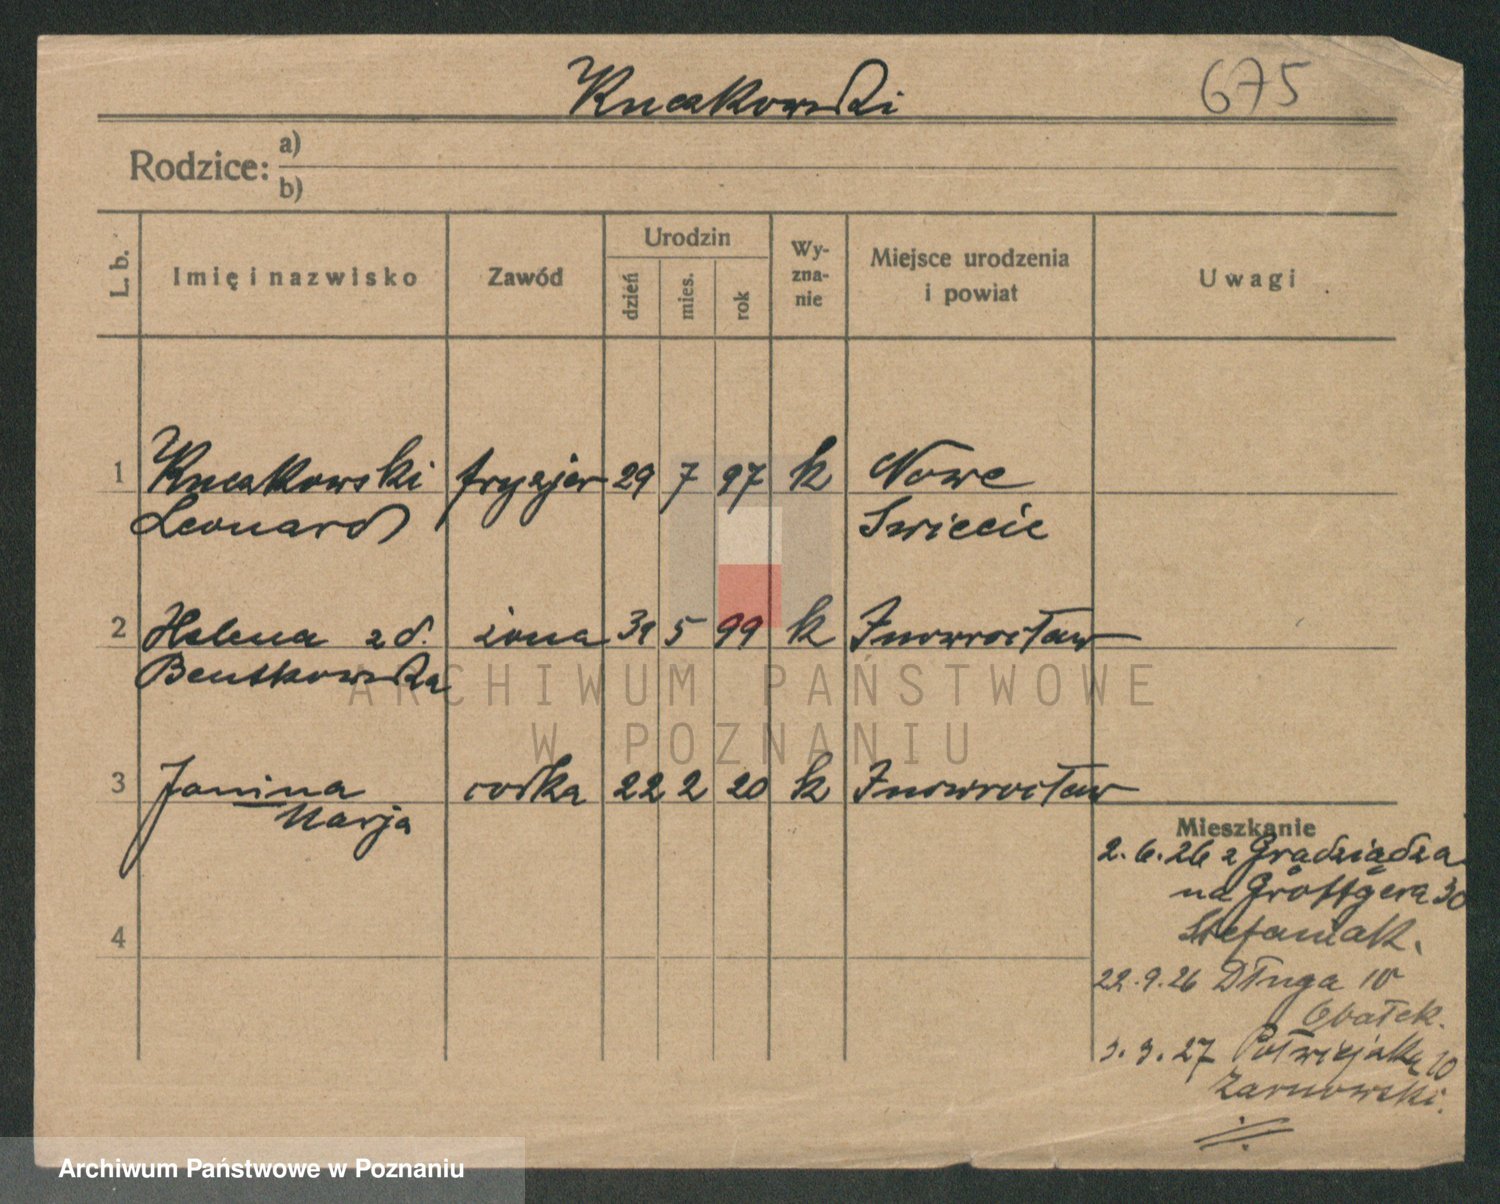 Kuczkowski
675
Rodzice: a)
b)
L. b.
Imię i nazwisko
Zawód
Urodzin
dzień
mies.
rok
Wy-
zna-
nie
Miejsce urodzenia
i powiat
Uwagi
1 Kuczkowski fryzjer 29 7 97 k Nowe
Leonard Swiecie
2 Helena zd. żona 31 5 99 k Inowrocław
Bentkowska
3 Janina córka 22 2 20 k Inowrocław
Marja
4
Mieszkanie
2.6.26 z Grądziądza
na Grottgera 30
Stefaniak.
22.9.26 Długa 10
3.3.27 Półwiejska 10
Żarnowski.
ARCHIWUM PAŃSTWOWE
W POZNANIU
Archiwum Państwowe w Poznaniu